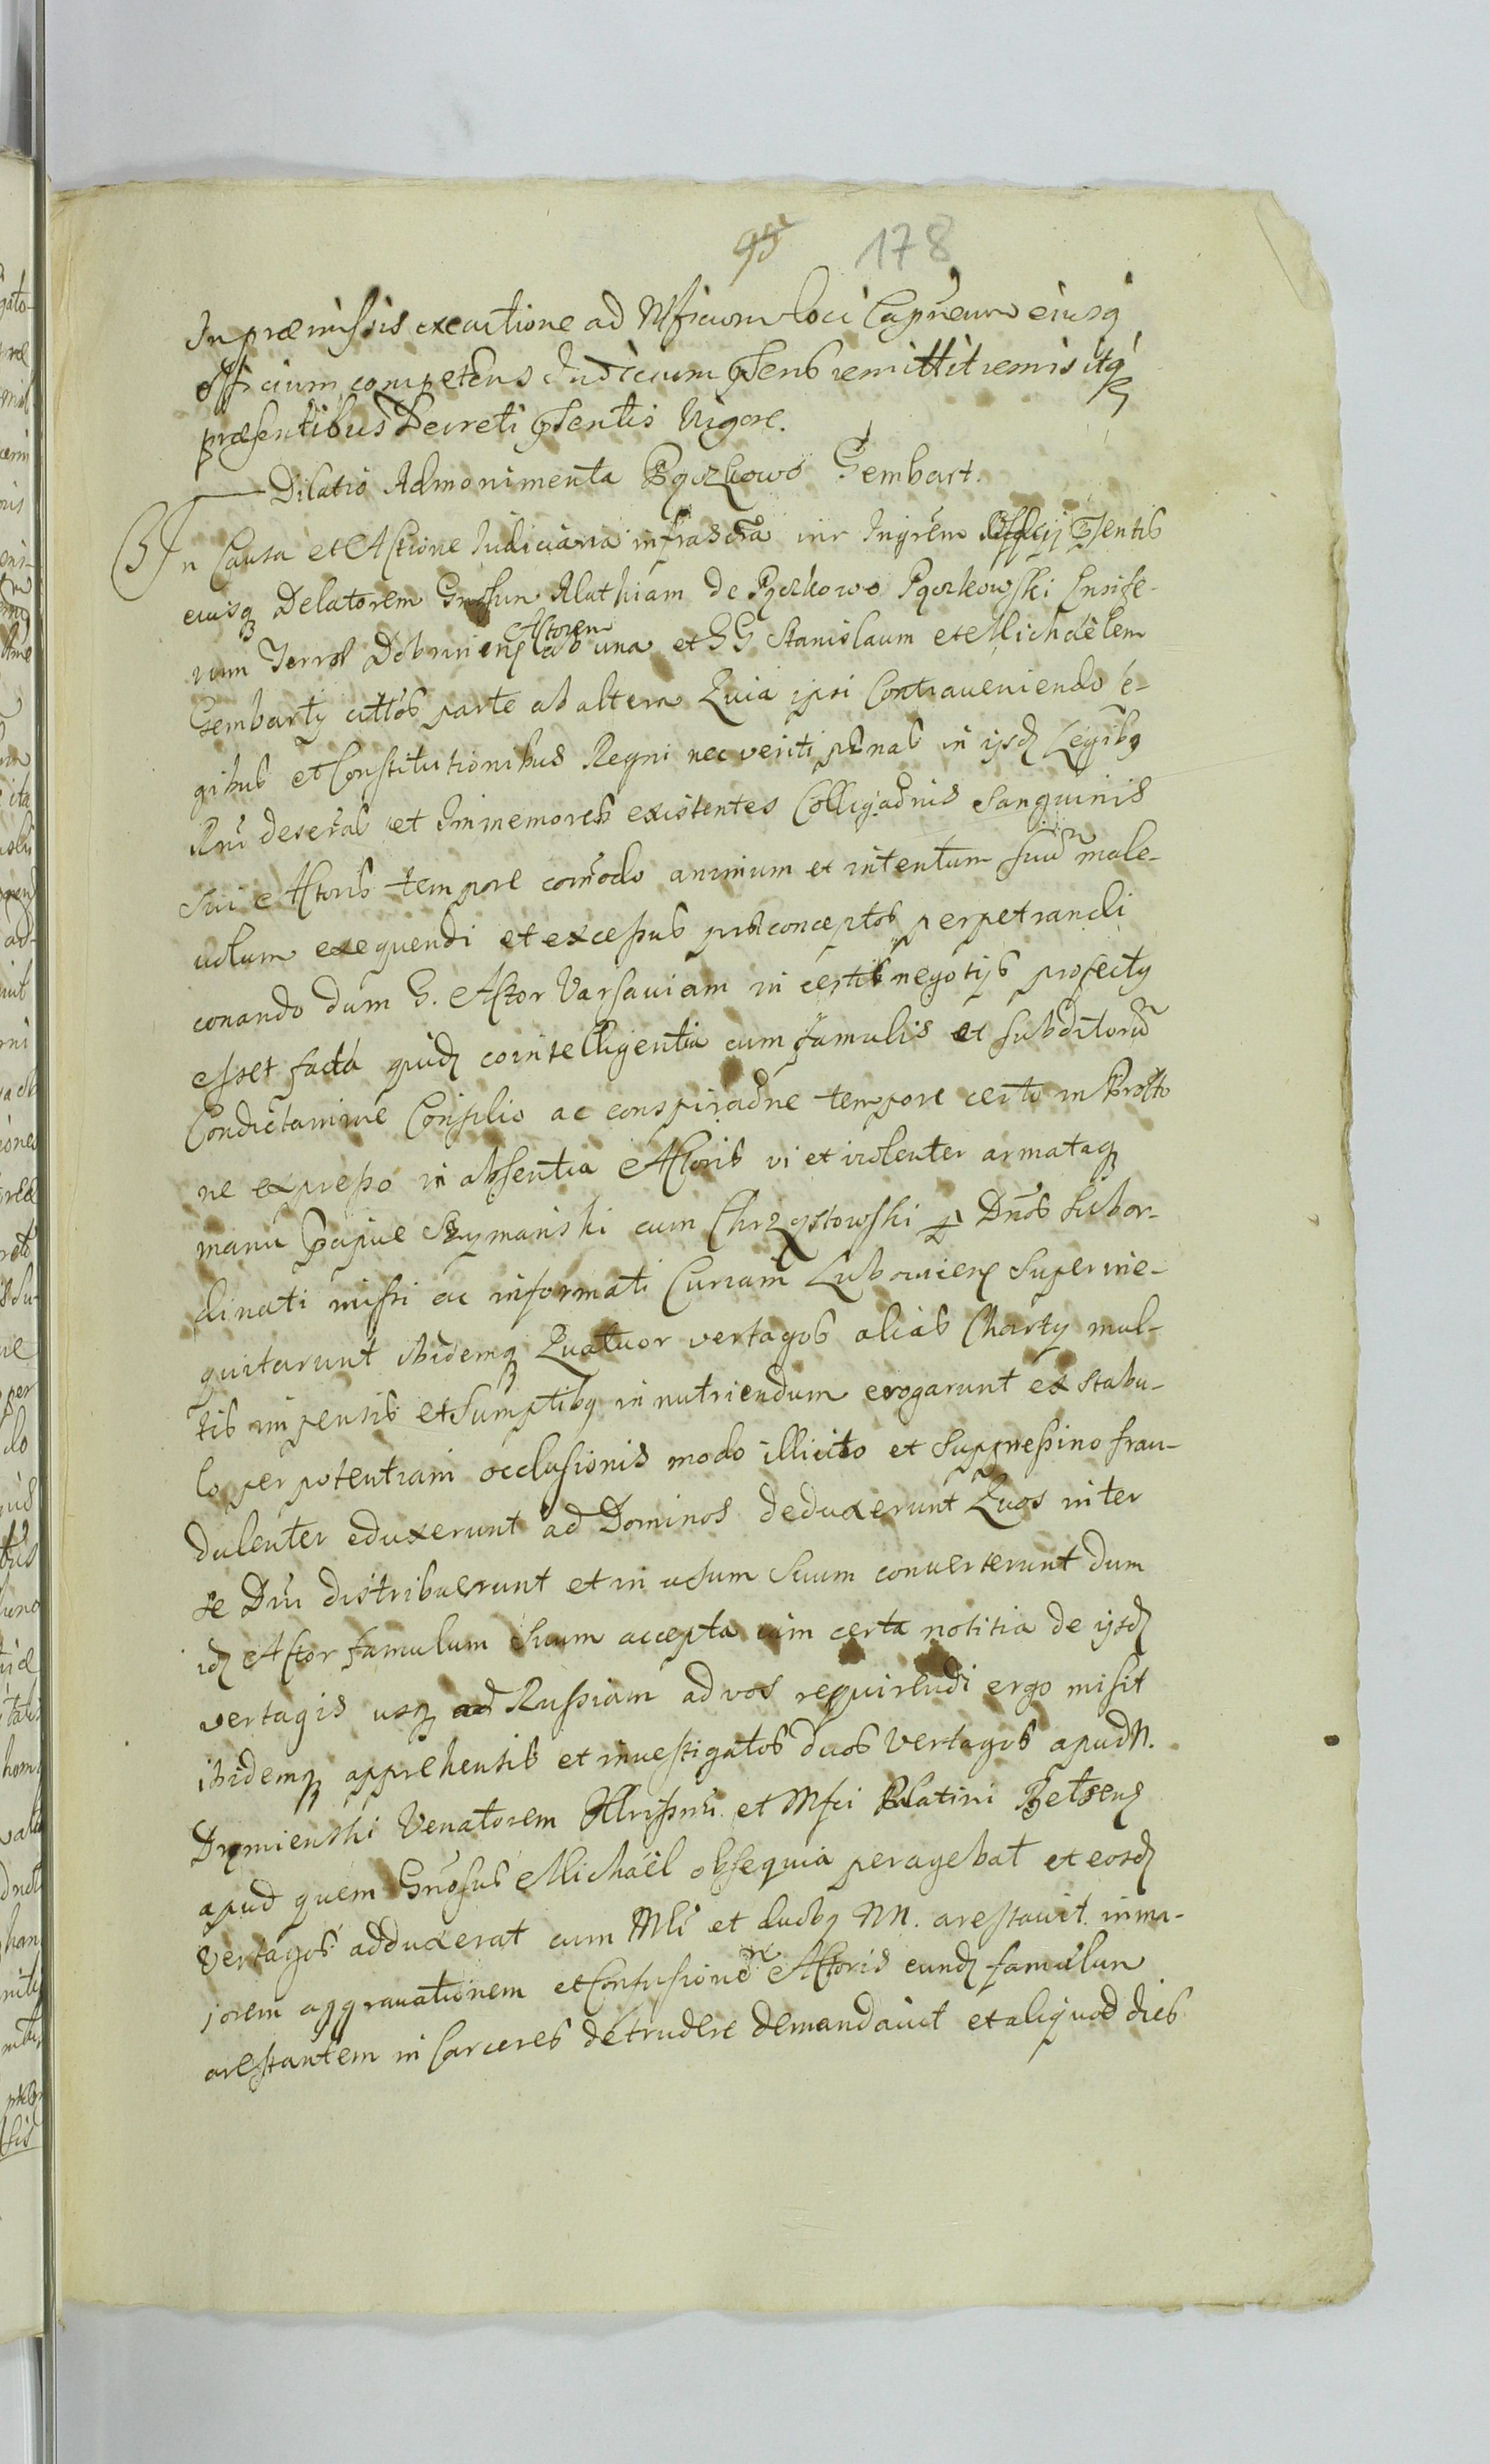 95 178
In præmissis executione ad Mficum loci Capñeum eiusq
officium competens Judicium pñens remittit remisitq
præsentibus Decreti pñentis Vigore.
Dilatio Admonimenta Pączkowo Gembart.
In Causa et Actione Judiciaria infrascrta inr Ingrem Officij pñentis
eiusq Delatorem Gnosum Mathiam de Pączkowo Pączkowski Ensife-
rum Terræ Dobrinens Actorem ab una et GG Stanislaum et Michaelem
Gembarty cittos parte ab altera Quia ipsi Contraveniendo é-
gibus et Constitutionibus Regni nec veriti pænas in ijsd Legibq
Rni descrtas et Immemores existentes Colligaõnis Sanguinis
sui Actoris tempore comodo animum et intentum suũ male-
volum exequendi et excessus præconceptos perpetrandi
conando dum G. Actor Varsaviam in certis negotijs profectq
esset facta quid cointelligentia cum famulis et subditorũ
Condictamine Consilio ac conspiraõne tempore certo in Protto
ne expresso in absentia Actoris vi et violenter armataq
manu Szymanski cum Chrzqstowski p Dnos subor-
dinati missi ac informati Curiam superine-
quitarunt ibidemq Quatuor vertagos alias Charty mul-
tis impensis et Sumptibq in nutriendum erogarunt ex stabu-
lo per potentiam occlusionis modo illicito et frau-
dulenter eduxerunt ad Dominos deduxerunt Quos inter
se Dni distribuerunt et in usum suum converterunt dum
id Actor famulum suum accepta cum certa notitia de ijsd
vertagis usq ad Russiam ad vos requirendi ergo misit
ibidemq apprehensis et investigatos duos Vertagos apud N.
Venatorem Illrissmi et Mfci Palatini Belsens
apud quem Gnosus Michaël obsequia peragebat et eosd
Vertagos adduxerat cum Mli et duobq NN. arestavit in ma-
iorem aggravationem et Confusionem Actoris eund famulum
arestantem in Carceres detrudere demandavit et aliquod dies